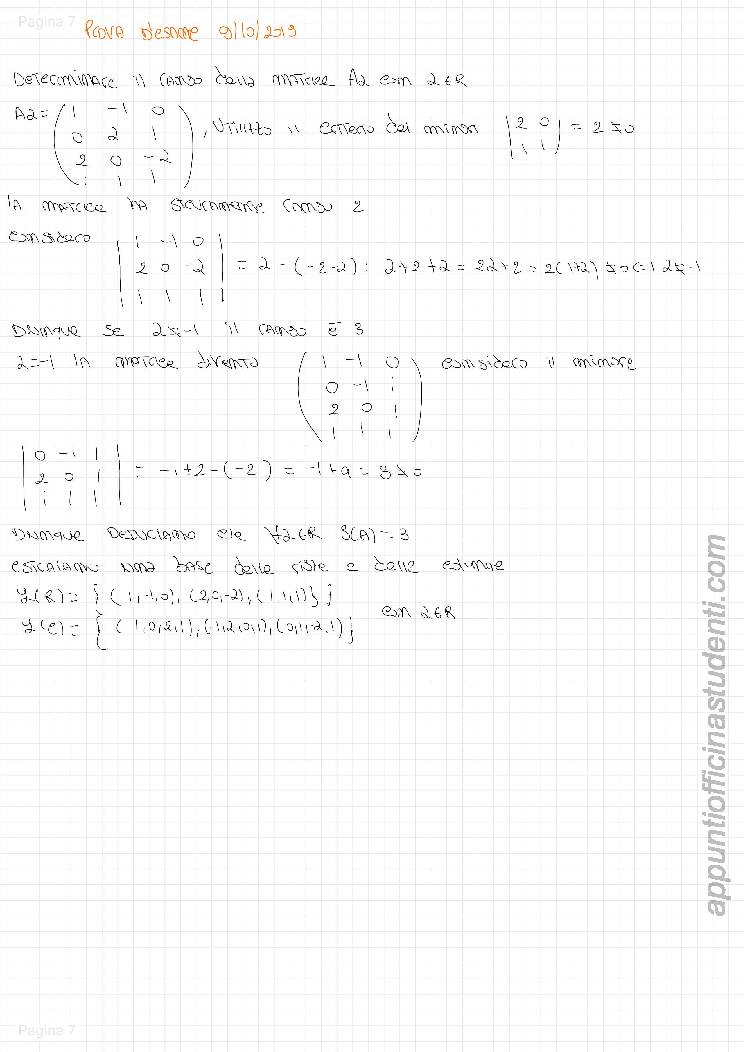 Pagina 7
PROVA D'ESAME 9/10/2019
Determinare il rango della matrice A2 con 2∈R
A2 = ( 1 -1 0 , utilizzo il criterio dei minori | 2 0 | = 2 ≠ 0
0 2 1 | 1 1 |
2 0 -2
1 1 1 )
la matrice ha sicuramente rango 2
considero | 1 -1 0 | = 2 - (-2-2) = 2+2+2 = 22+2 = 2(1+2) ≠ 0 <=> 2≠-1
| 2 0 -2 |
| 1 1 1 |
Dunque se 2≠-1 il rango è 3
2=-1 la matrice diventa ( 1 -1 0 considero il minore
0 -1 1
2 0 1
1 1 1 )
| 0 -1 1 | = -1+2-(-2) = -1+4 = 3 ≠
| 2 0 1 |
| 1 1 1 |
Dunque deduciamo che ∀2∈R S(A)=3
estraiamo una base delle righe e delle colonne
L(R) = { (1,-1,0), (2,0,-2), (1,1,1) } con 2∈R
L(C) = { (1,0,2,1), (-1,2,0,1), (0,1,-2,1) }
appuntiofficinastudenti.com
Pagina 7